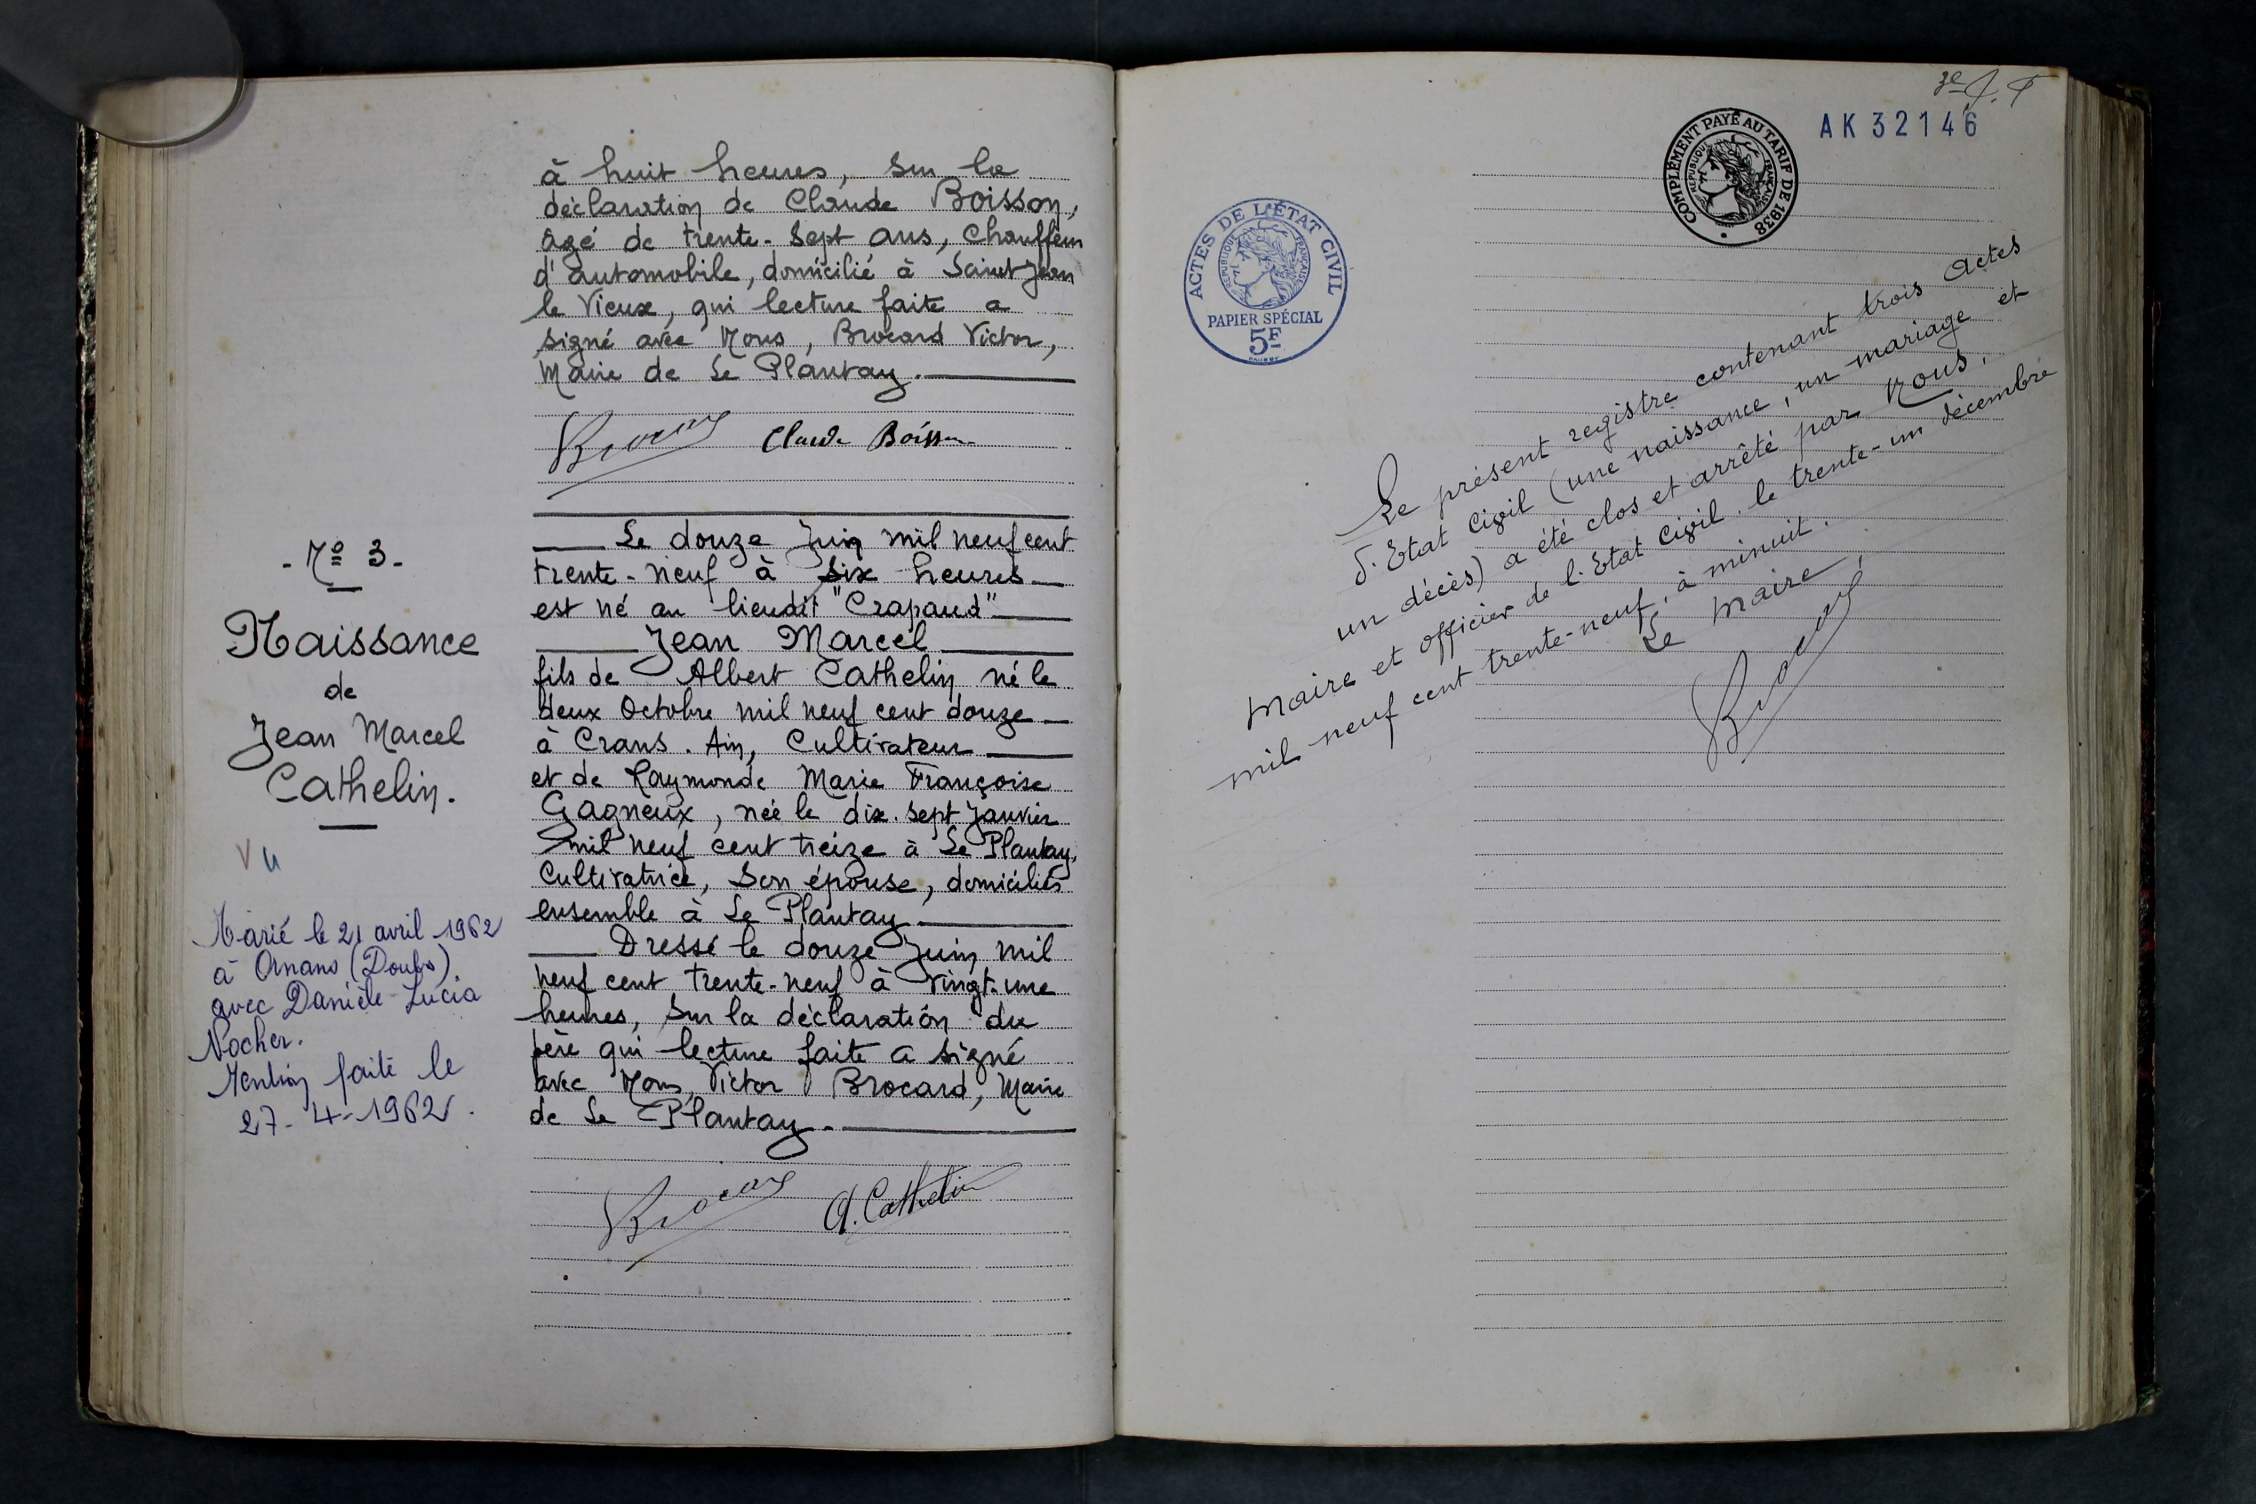 à huit heures, sur la
déclaration de Claude Boisson,
âgé de trente-sept ans, chauffeur
d'automobile, domicilié à Saint Jean
le Vieux, qui lecture faite a
signé avec Nous, Brocard Victor,
Maire de Le Plantay.
Brocard Claude Boisson
- Nº 3 -
Naissance
de
Jean Marcel
Cathelin.
Vu
Marié le 21 avril 1962
à Ornans (Doubs)
avec Danièle-Lucia
Nocher.
Mention faite le
27-4-1962.
Le douze Juin mil neuf cent
trente-neuf à six heures
est né au lieudit "Crapaud"
Jean Marcel
fils de Albert Cathelin né le
deux Octobre mil neuf cent douze
à Crans. Ain, Cultivateur
et de Raymonde Marie Françoise
Gagneux, née le dix. sept Janvier
mil neuf cent treize à Le Plantay,
Cultivatrice, son épouse, domiciliés
ensemble à Le Plantay
Dressé le douze Juin mil
neuf cent trente-neuf à vingt-une
heures, sur la déclaration du
père qui lecture faite a signé
avec Nous, Victor Brocard, Maire
de Le Plantay.
Brocard A. Cathelin
AK 32146
COMPLÉMENT PAYÉ AU TARIF DE 1938
RÉPUBLIQUE FRANÇAISE
ACTES DE L'ÉTAT CIVIL
RÉPUBLIQUE FRANÇAISE
PAPIER SPÉCIAL
5F
Le présent registre contenant trois actes
d'Etat Civil (une naissance, un mariage et
un décès) a été clos et arrêté par Nous,
Maire et officier de l'Etat Civil, le trente-un décembre
mil neuf cent trente-neuf, à minuit.
Le Maire,
Brocard